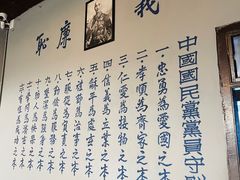 義廉恥
中國國民黨黨員守則
一、忠勇為愛國之本
二、孝順為齊家之本
三、仁愛為接物之本
四、信義為立業之本
五、和平為處世之本
六、禮節為治事之本
七、服從為負責之本
八、勤儉為服務之本
九、整潔為強身之本
十、助人為快樂之本
十一、學問為濟世之本
十二、有恆為成功之本